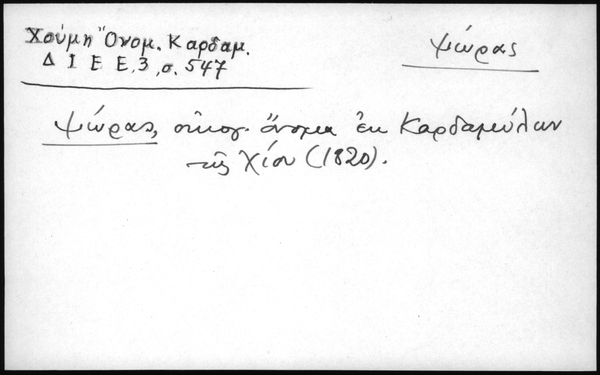 Χούμη Ὀνομ. Καρδαμ.
Δ Ι Ε Ε, 3, σ. 547
Ψώρας
Ψώρας, οἰκογ. ὄνομα ἐκ Καρδαμύλων
τῆς Χίου (1820).